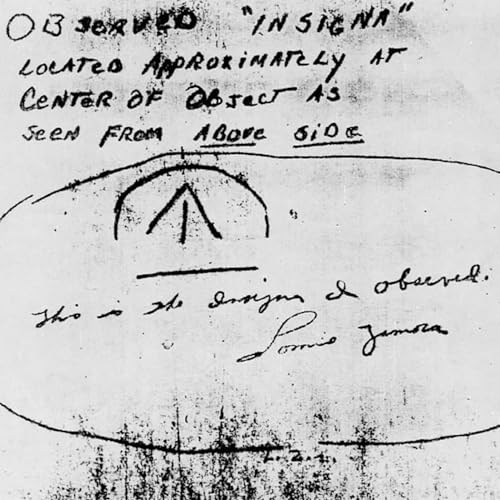 OBSERVED "INSIGNA"
LOCATED APPROXIMATELY AT
CENTER OF OBJECT AS
SEEN FROM ABOVE SIDE
This is the design I observed.
Lonnie Zamora
L.Z.